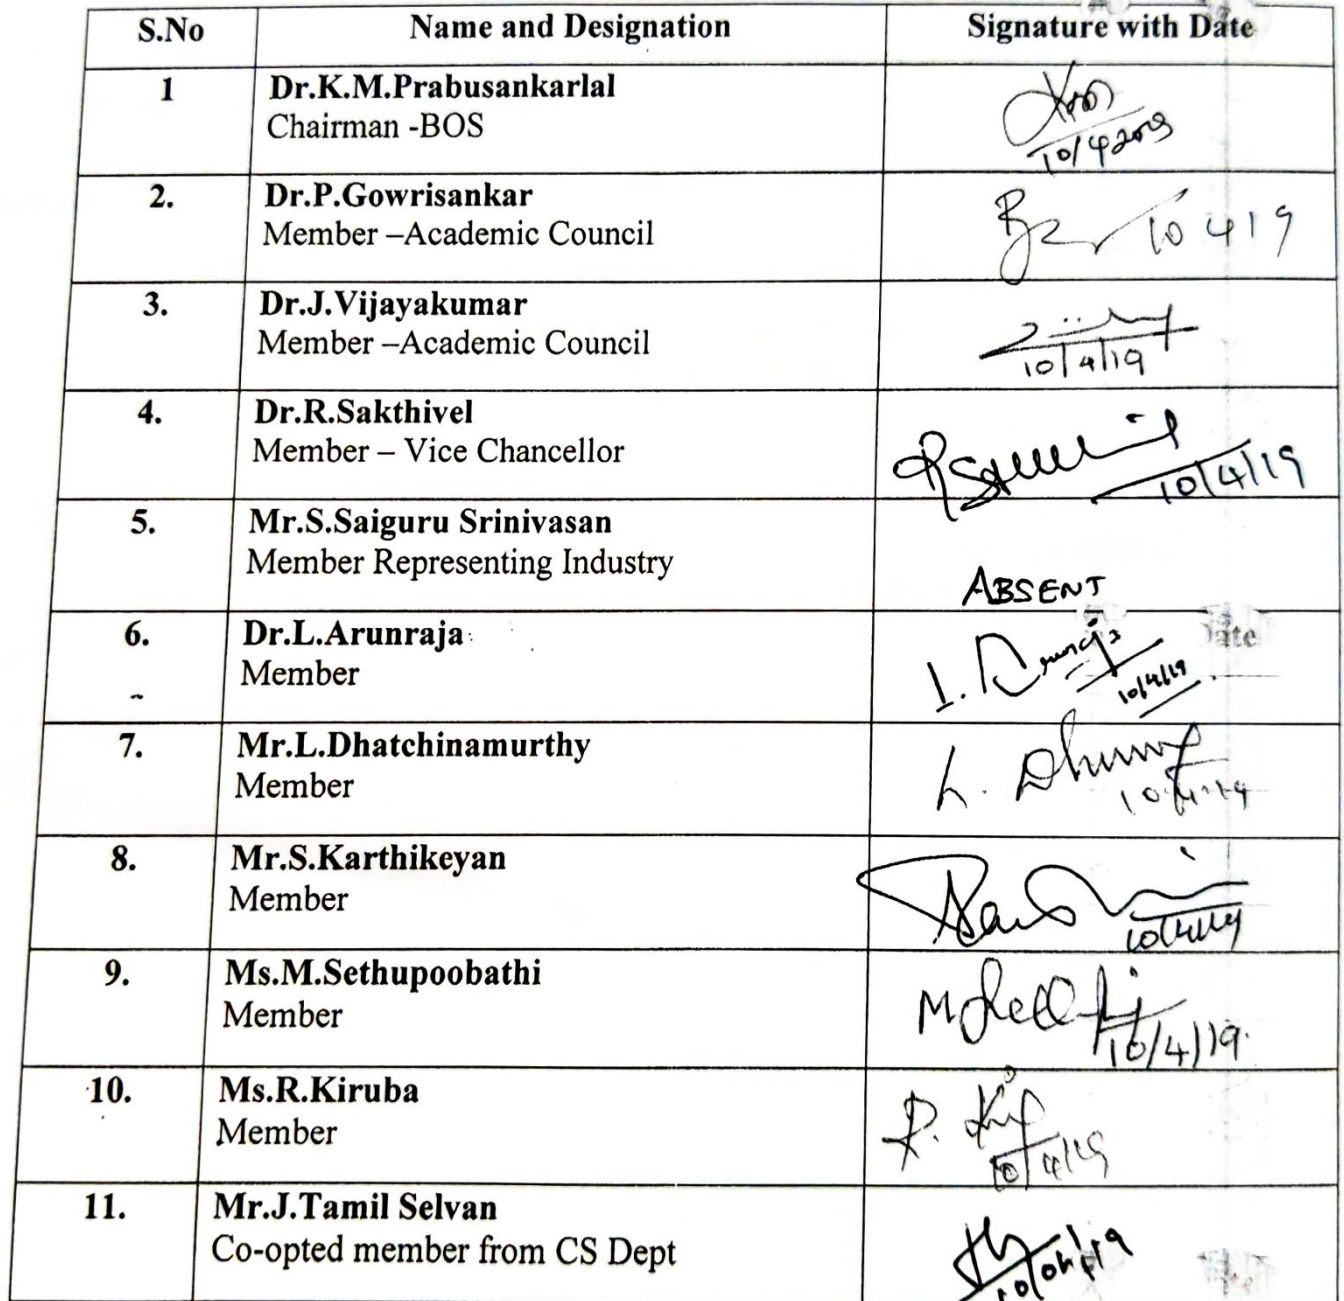 S.No Name and Designation Signature with Date
1 Dr.K.M.Prabusankarlal
Chairman -BOS
10/4/2019
2. Dr.P.Gowrisankar
Member –Academic Council
10 4 19
3. Dr.J.Vijayakumar
Member –Academic Council
10/4/19
4. Dr.R.Sakthivel
Member – Vice Chancellor
10/4/19
5. Mr.S.Saiguru Srinivasan
Member Representing Industry
ABSENT
6. Dr.L.Arunraja
Member
10/4/19
7. Mr.L.Dhatchinamurthy
Member
10.4.19
8. Mr.S.Karthikeyan
Member
10/4/19
9. Ms.M.Sethupoobathi
Member
10/4/19.
10. Ms.R.Kiruba
Member
10/4/19
11. Mr.J.Tamil Selvan
Co-opted member from CS Dept
10/04/19